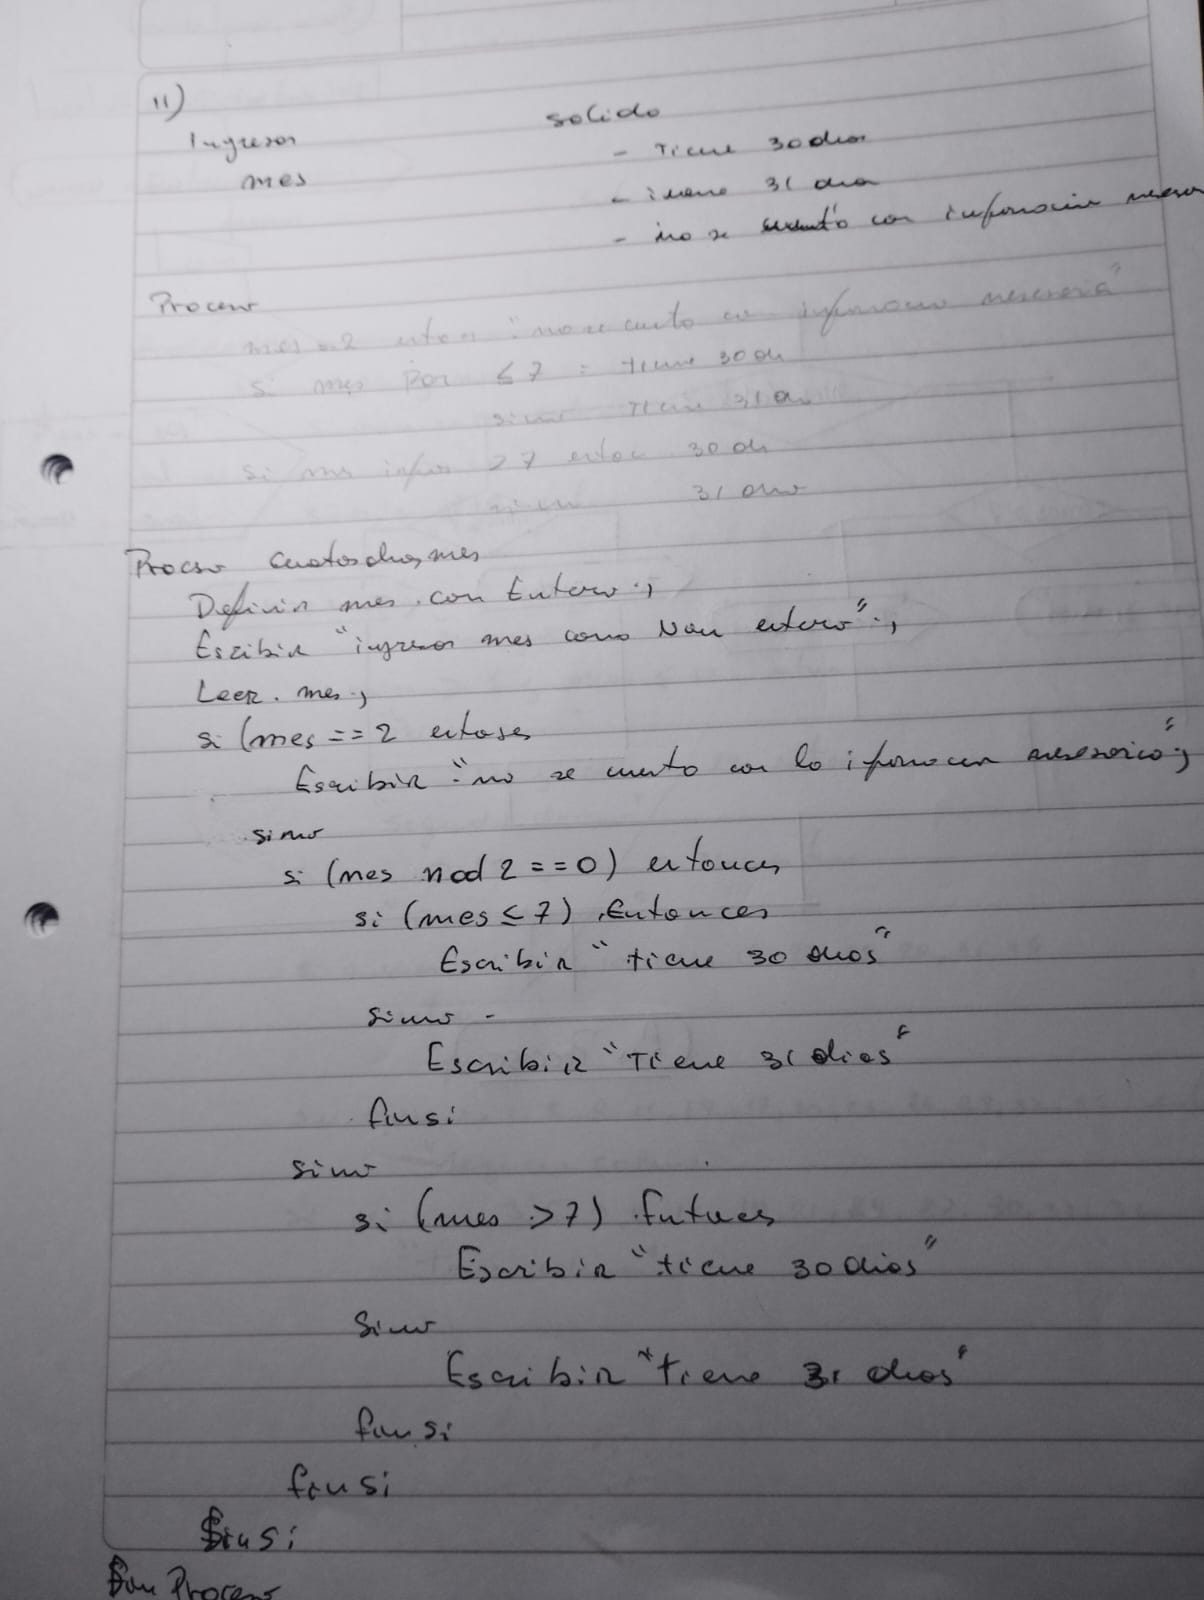 11)
Ingresos salida
mes - Tiene 30 dias
- tiene 31 dia
- no se cuenta con informacion
Proceso
mes = 2 "no se cuenta con informacion necesaria"
si mes par ≤ 7 = tiene 30 di
sino tiene 31 di
si mes > 7 30 di
31 dias
Proceso cuantosdias_mes
Definir mes con Entero;
Escribir "ingreso mes como Num entero";
Leer mes;
si (mes == 2 entoses
Escribir "no se cuenta con la necesaria";
sino
si (mes mod 2 == 0) entonces
si (mes ≤ 7) Entonces
Escribir "tiene 30 dias"
sino -
Escribir "Tiene 31 dias"
finsi
sino
si (mes > 7) Entonces
Escribir "tiene 30 dias"
Sino
Escribir "tiene 31 dias"
finsi
finsi
finsi
Fin Proceso